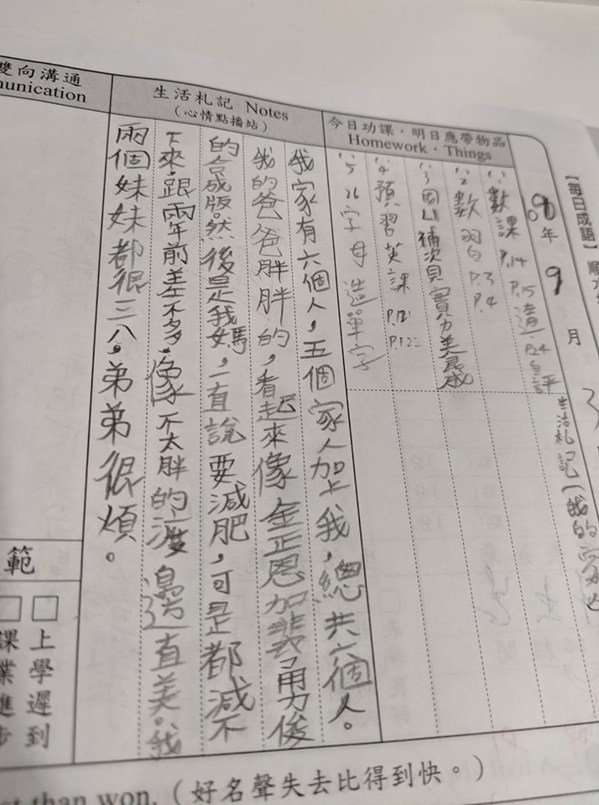 【每日成語】順水
98年9月3
生活札記(我的
(1)數課 P.14 P.15
(2)數習自 P.3 P.4
(3)國L1補次貝實力美晨成
(4)預習英課 P.121 P.122
(5)26字母 造單字
今日功課・明日應帶物品
Homework・Things
生活札記 Notes
(心情點播站)
我家有六個人,五個家人加上我,總共六個人。
我的爸爸胖胖的,看起來像金正恩加裴勇俊
的合成版。然後是我媽,一直說要減肥,可是都減不
下來,跟兩年前差不多,像不太胖的渡邊直美。我
兩個妹妹都很三八,弟弟很煩。
雙向溝通
unication
範
上學遲到
課業進步
t than won.(好名聲失去比得到快。)